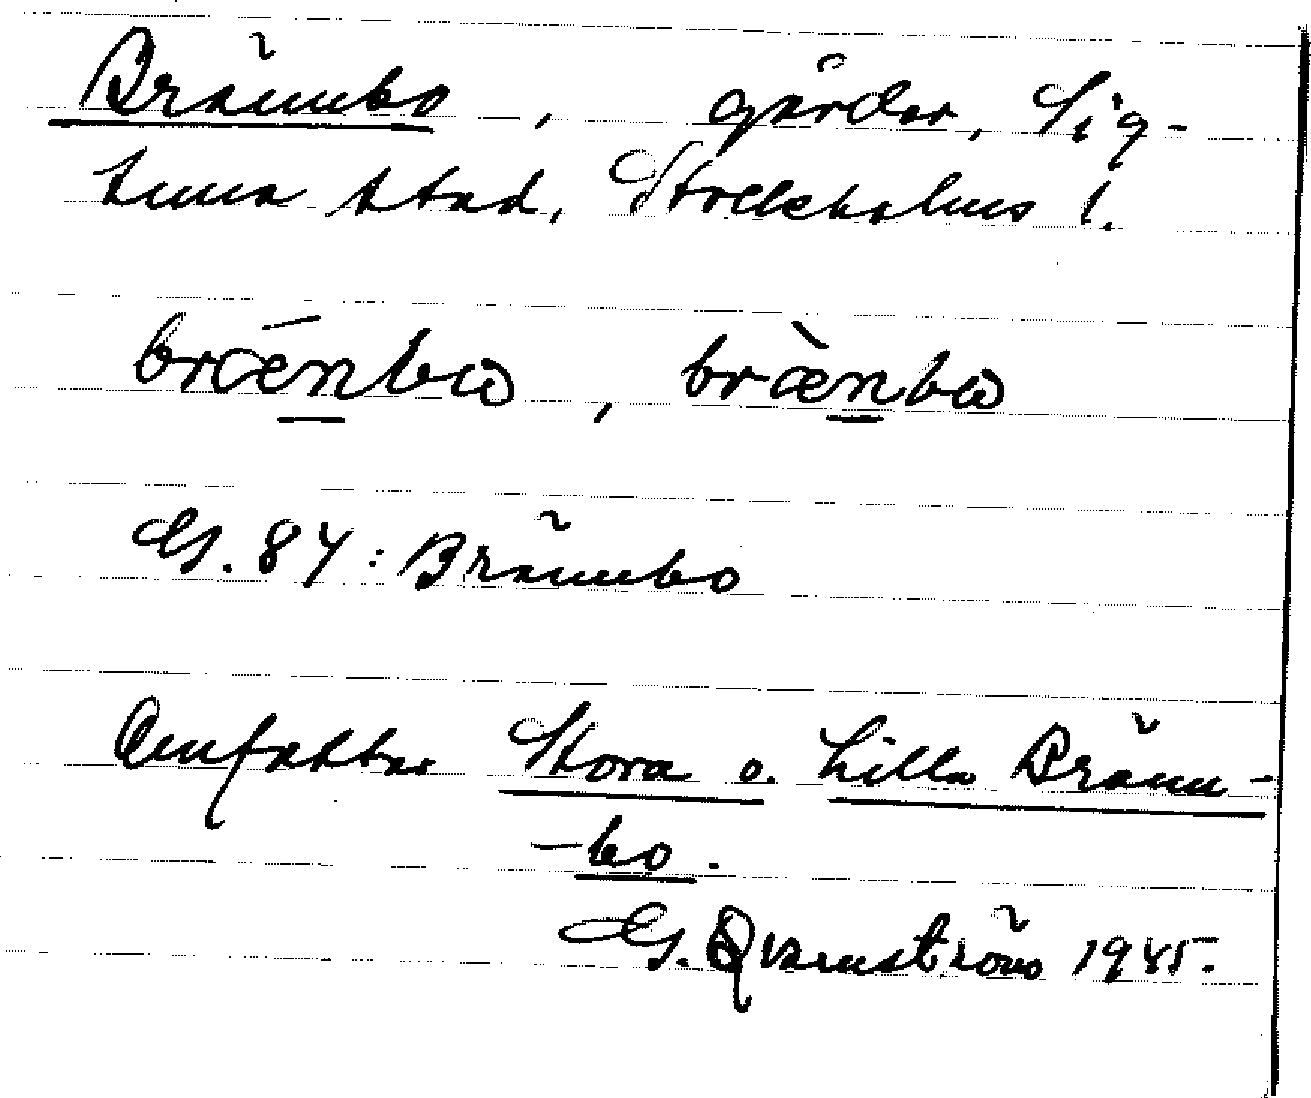 Brännbo, gårdar, Sig-
tuna stad, Stockholms l.
brǽnbω, bræ̀nbω
G. 84: Brännbo
Omfattar Stora o. Lilla Bränn-
-bo.
G. Qvarnström 1945.